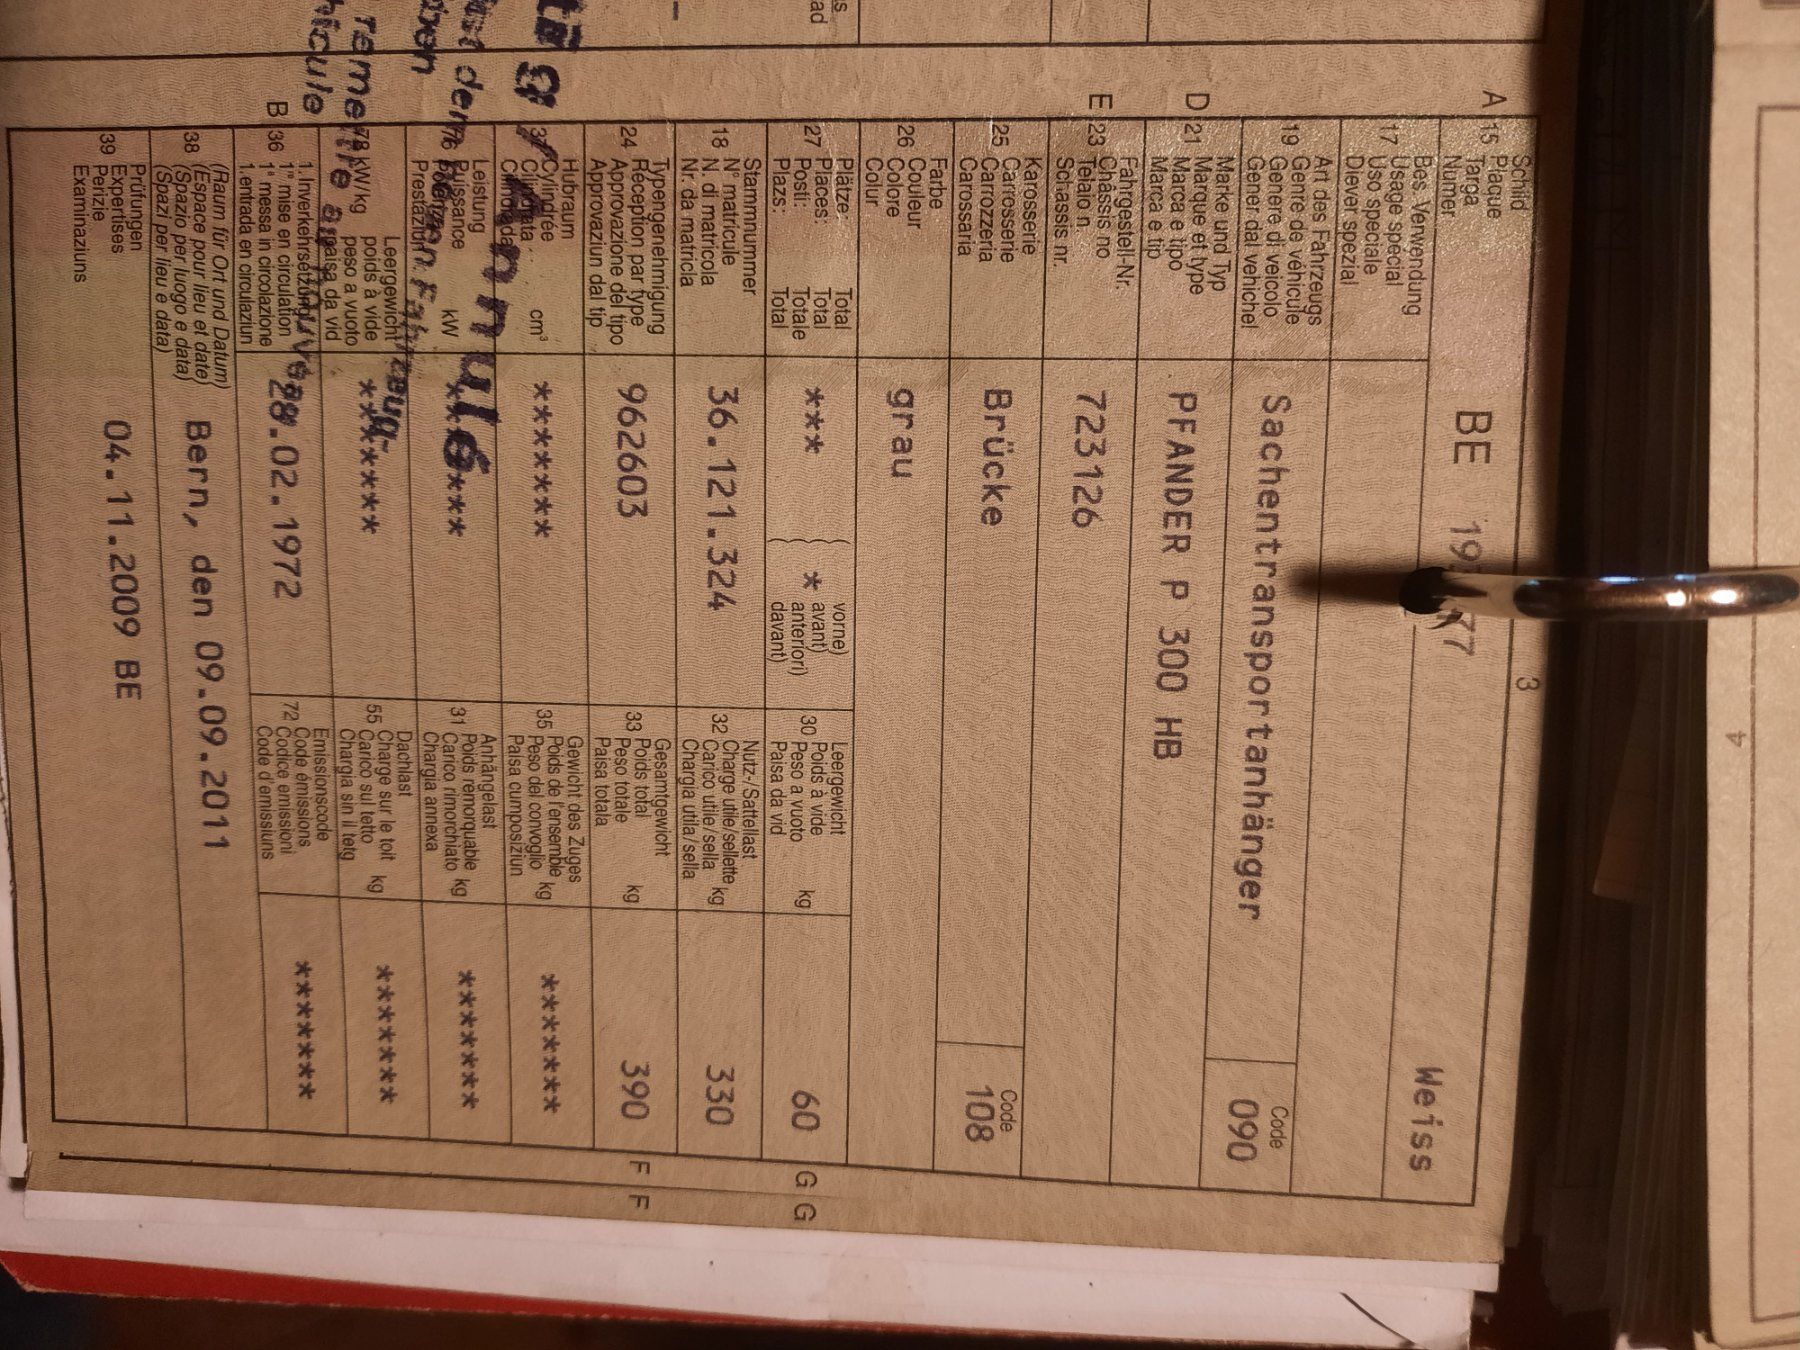 3
Schild
A 15 Plaque
Targa
Numer
BE
Weiss
Bes. Verwendung
17 Usage spécial
Uso speciale
Diever spezial
Art des Fahrzeugs
19 Genre de véhicule
Genere di veicolo
Gener dal vehichel
Sachentransportanhänger
Code
090
Marke und Typ
D 21 Marque et type
Marca e tipo
Marca e tip
PFANDER P 300 HB
Fahrgestell-Nr.
E 23 Châssis no
Telaio n.
Schassis nr.
723126
Karosserie
25 Carrosserie
Carrozzeria
Carossaria
Brücke
Code
108
Farbe
26 Couleur
Colore
Colur
grau
Plätze: Total
27 Places: Total
Posti: Totale
Plazs: Total
***
*
vorne)
avant)
anteriori)
davant)
Leergewicht
30 Poids à vide
Peso a vuoto kg
Paisa da vid
60 G G
Stammnummer
18 N° matricule
N. di matricola
Nr. da matricla
36.121.324
Nutz-/Sattellast
32 Charge utile/sellette
Carico utile/sella kg
Chargia utila/sella
330
Typengenehmigung
24 Réception par type
Approvazione del tipo
Approvaziun dal tip
962603
Gesamtgewicht
33 Poids total
Peso totale kg
Paisa totala
390 F F
Hubraum
37 Cylindrée
cm³
*******
Gewicht des Zuges
35 Poids de l'ensemble
Peso del convoglio kg
Paisa cumposiziun
*******
Leistung
76 Puissance kW
Prestaziun
Anhängelast
31 Poids remorquable
Carico rimorchiato kg
Chargia annexa
*******
Leergewicht
78 kW/kg poids à vide
peso a vuoto
paisa da vid
*******
Dachlast
55 Charge sur le toit
Carico sul tetto kg
Chargia sin il tetg
*******
1. Inverkehrsetzung
B 36 1re mise en circulation
1a messa in circolazione
1. entrada en circulaziun
28.02.1972
Emissionscode
72 Code émissions
Codice emissioni
Code d'emissiuns
*******
(Raum für Ort und Datum)
38 (Espace pour lieu et date)
(Spazio per luogo e data)
(Spazi per lieu e data)
Bern, den 09.09.2011
Prüfungen
39 Expertises
Perizie
Examinaziuns
04.11.2009 BE
Annulé
4